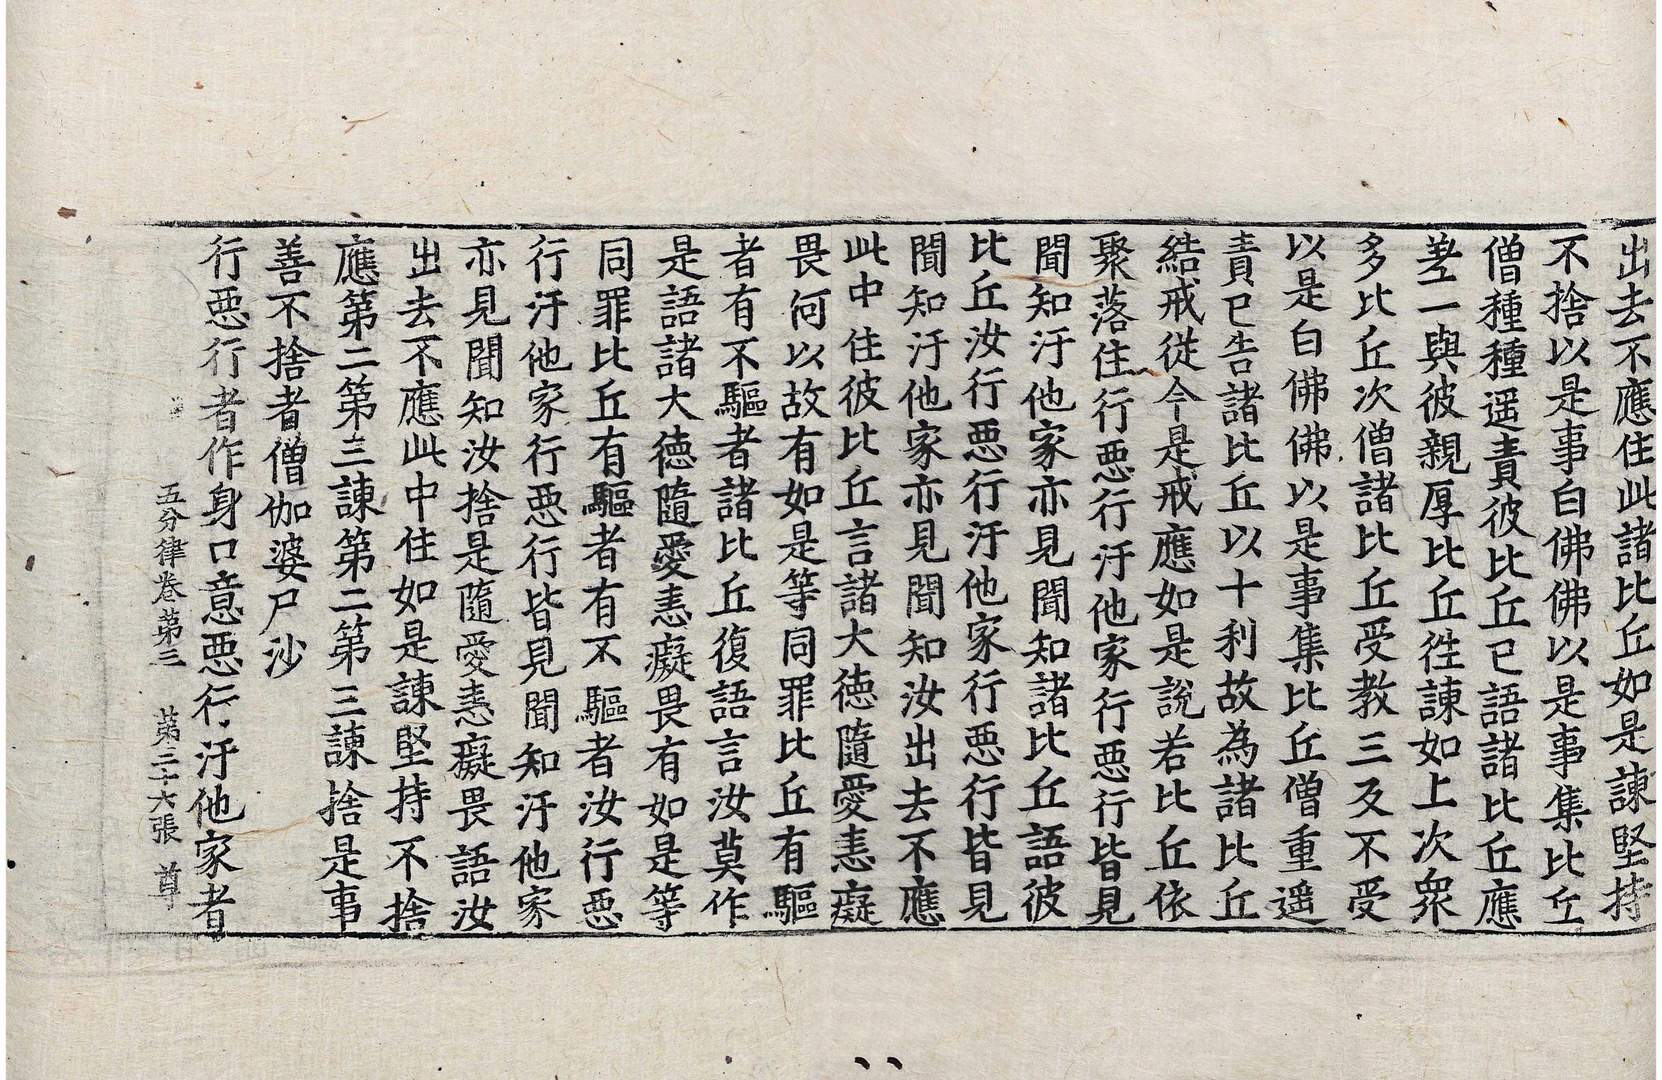 出去不應住此諸比丘如是諫堅持
不捨以是事白佛佛以是事集比丘
僧種種遥責彼比丘已語諸比丘應
差一與彼親厚比丘徃諫如上次衆
多比丘次僧諸比丘受教三反不受
以是白佛佛以是事集比丘僧重遥
責已告諸比丘以十利故為諸比丘
結戒從今是戒應如是說若比丘依
聚落住行惡行汙他家行惡行皆見
聞知汙他家亦見聞知諸比丘語彼
比丘汝行惡行汙他家行惡行皆見
聞知汙他家亦見聞知汝出去不應
此中住彼比丘言諸大徳隨愛恚癡
畏何以故有如是等同罪比丘有驅
者有不驅者諸比丘復語言汝莫作
是語諸大徳隨愛恚癡畏有如是等
同罪比丘有驅者有不驅者汝行惡
行汙他家行惡行皆見聞知汙他家
亦見聞知汝捨是隨愛恚癡畏語汝
出去不應此中住如是諫堅持不捨
應第二第三諫第二第三諫捨是事
善不捨者僧伽婆尸沙
行惡行者作身口意惡行汙他家者
五分律卷第三 第三十六張 尊